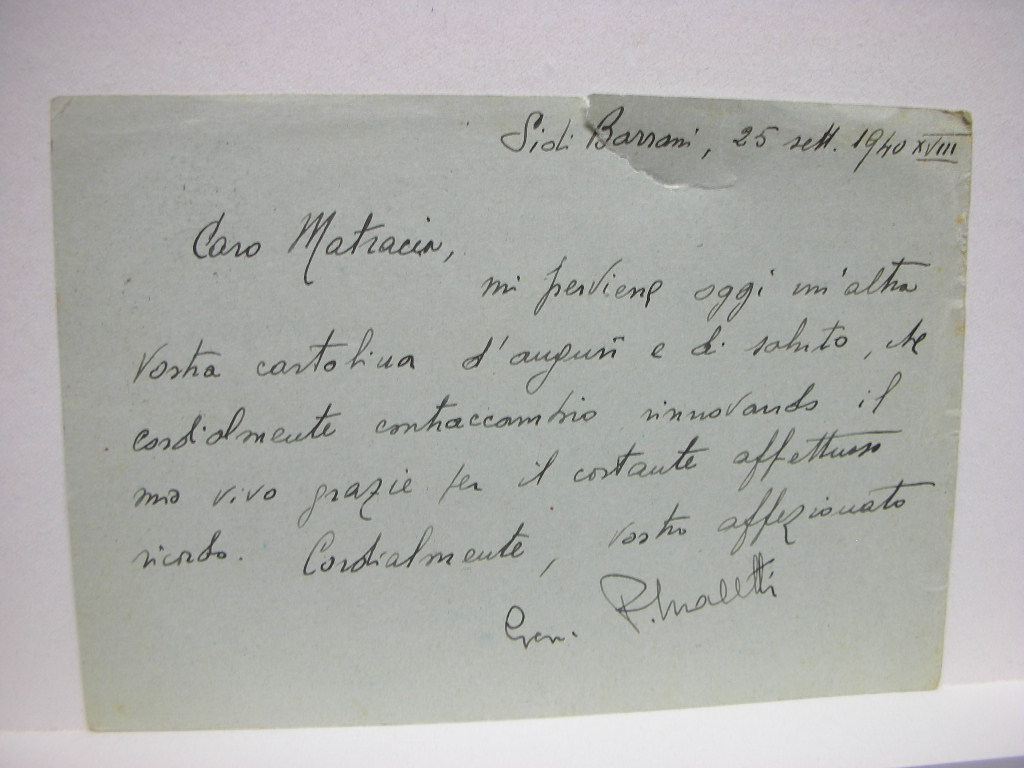 Sidi Barrani, 25 sett. 1940 XVIII
Caro Matracia,
mi perviene oggi un'altra
Vostra cartolina d'auguri e di saluto, che
cordialmente contraccambio rinnovando il
mio vivo grazie per il costante affettuoso
ricordo. Cordialmente, vostro affezionato
Gen. P. Maletti